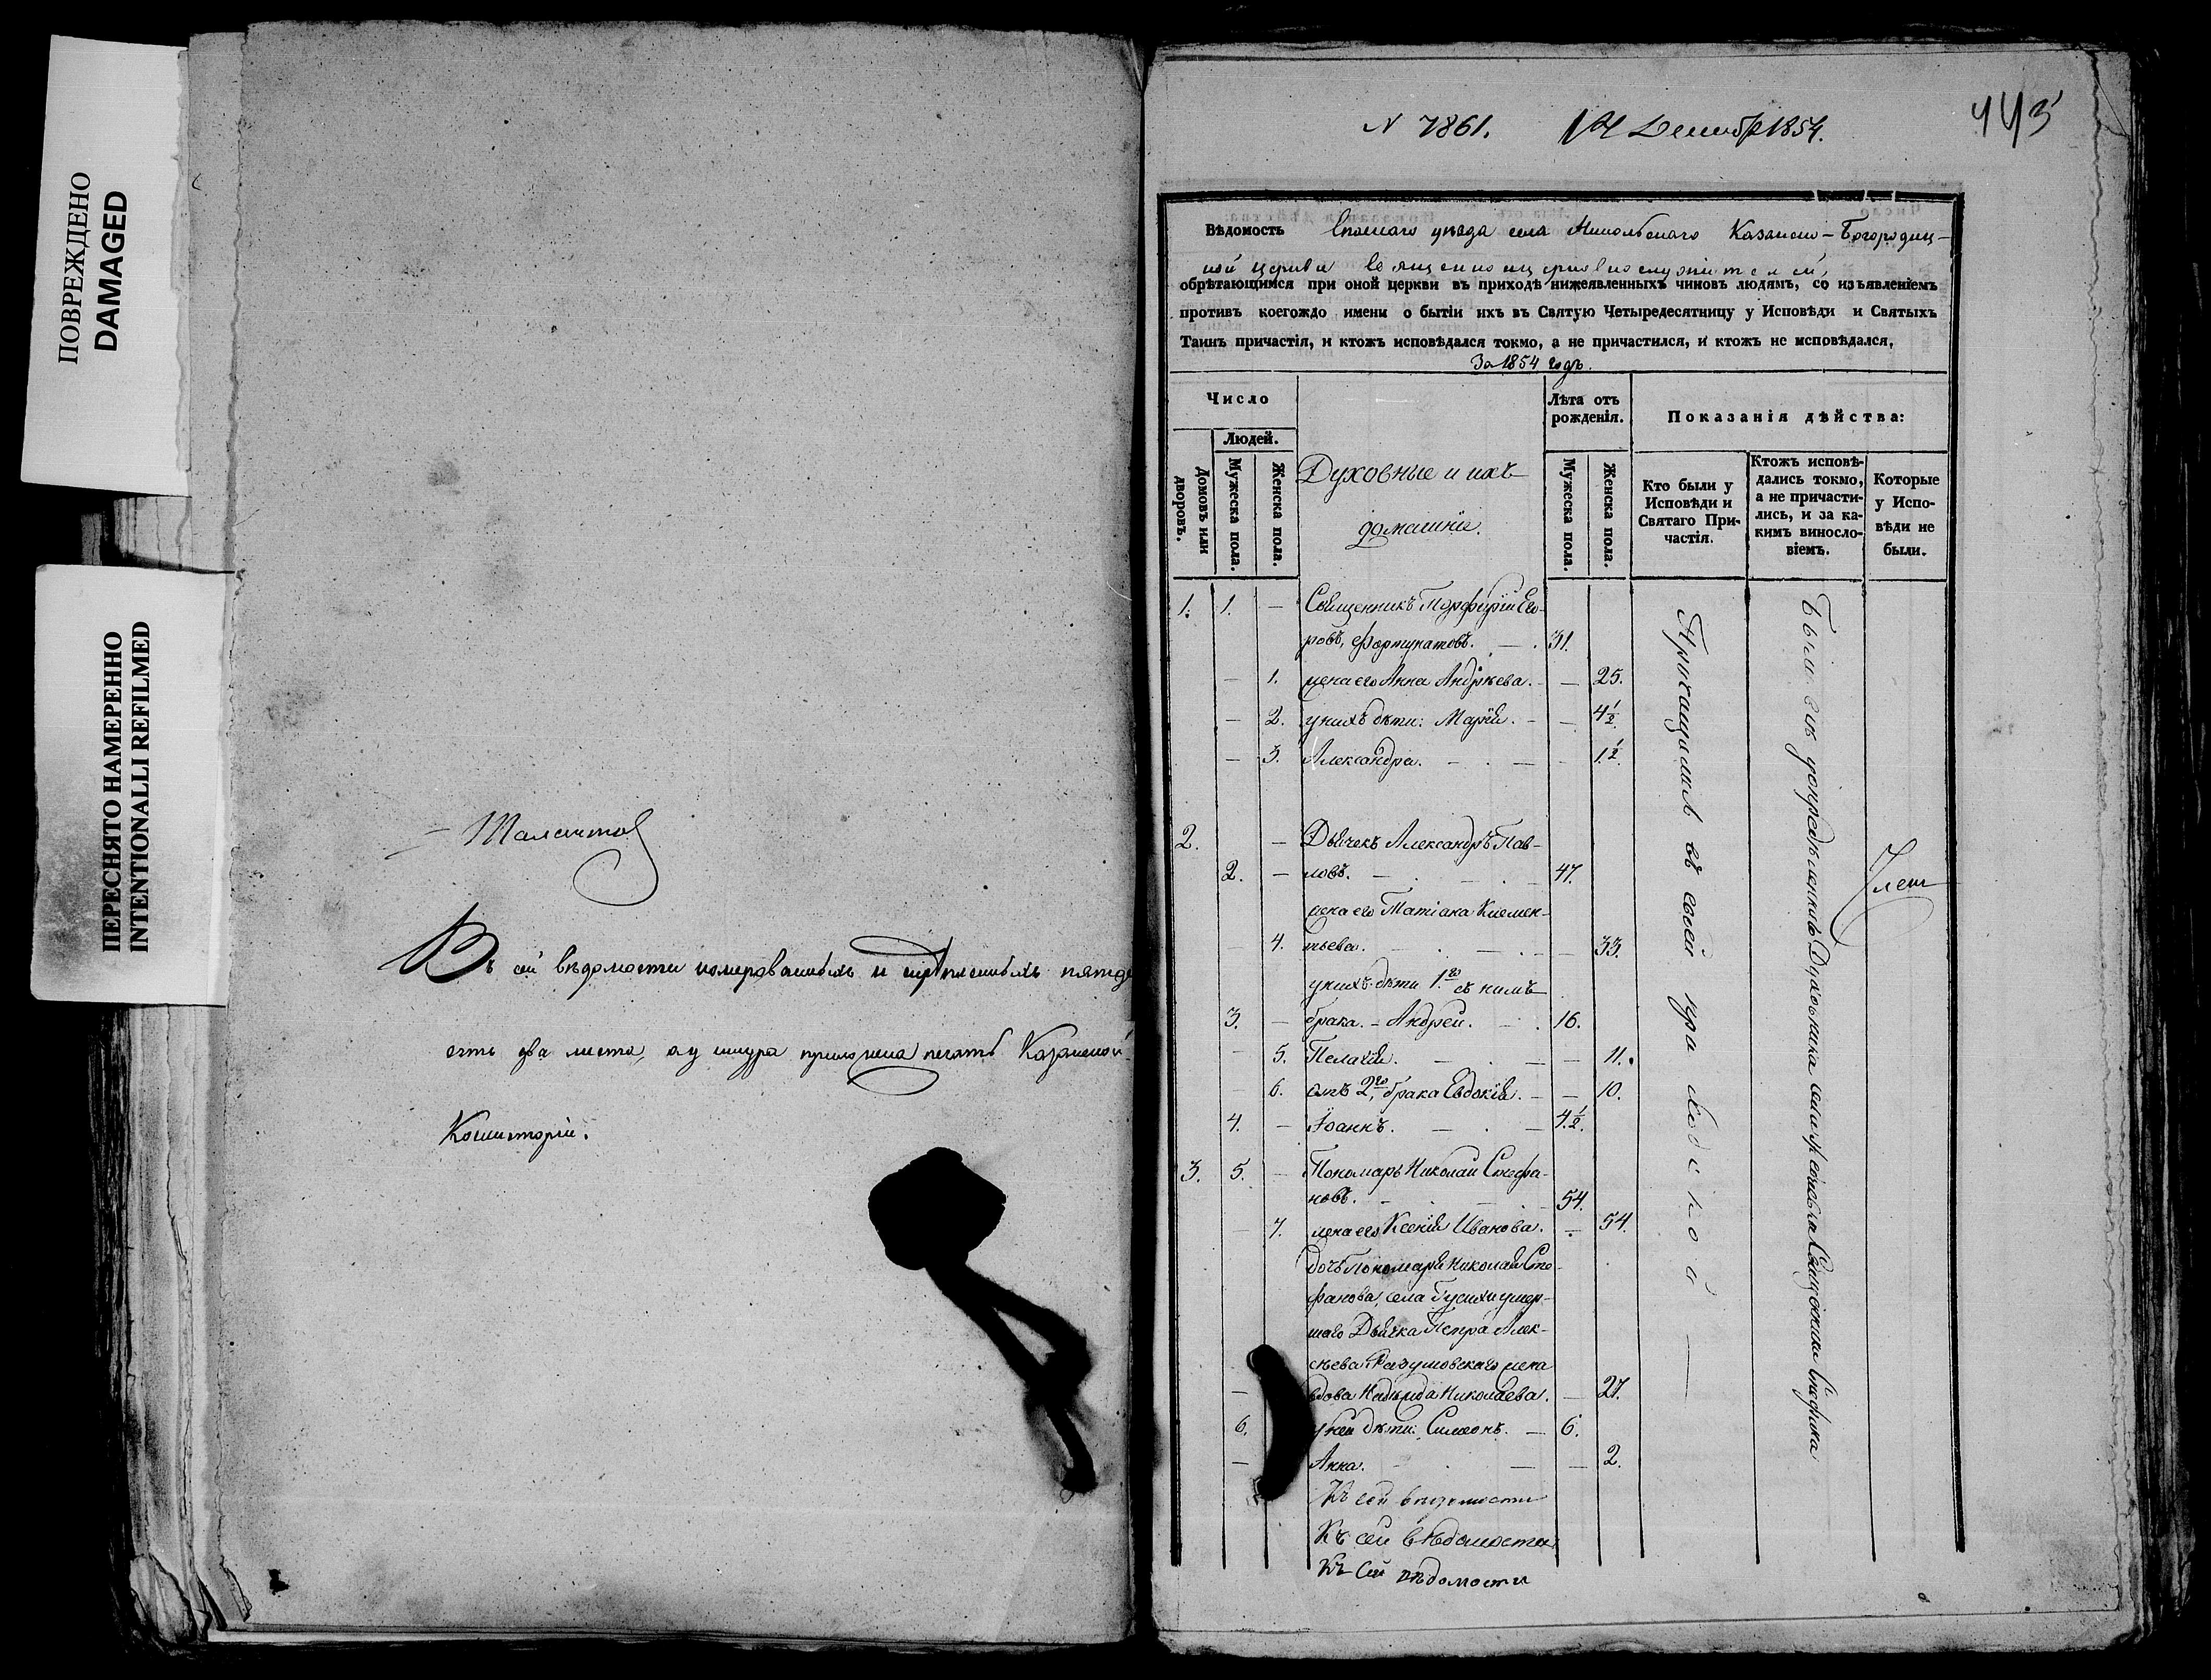 ПОВРЕЖДЕНО
DAMAGED
ПЕРЕСНЯТО НАМЕРЕННО
INTENTIONALLI REFILMED
Въ сей вѣдомости нумерованныхъ и скрѣпленныхъ пятьде
сятъ два листа, а у шнура приложена печать Казанской
Консисторіи.
N 7861. 14 Декабря 1854.
443
Вѣдомость Спасскаго уѣзда села Никольскаго Казанско-Богородиц-
кой церкви священноцерковнослужителей,
обрѣтающимся при оной церкви въ приходѣ нижеявленныхъ чиновъ людямъ, со изъявленіемъ
противъ коегождо имени о бытіи ихъ въ Святую Четыредесятницу у Исповѣди и Святыхъ
Таинъ причастія, и ктожъ исповѣдался токмо, а не причастился, и ктожъ не исповѣдался,
За 1854 годъ.
Число
Людей.
Домовъ или дворовъ.
Мужеска пола.
Женска пола.
Духовные и ихъ
домашніе.
Лѣта отъ рожденія.
Мужеска пола.
Женска пола.
Показанія дѣйства:
Кто были у Исповѣди и Святаго Причастія.
Ктожъ исповѣдались токмо, а не причастились, и за какимъ винословіемъ.
Которые у Исповѣди не были.
1. 1. — Священникъ Порфирій Его-
ровъ, Фортунатовъ. — 31.
— 1. жена его Анна Андрѣева. — 25.
— 2. у нихъ дѣти: Марія. — 4½
— 3. Александра. — 1½
2. — Дьячекъ Александръ Пав-
2. — ловъ. — 47.
жена его Татіана Клемен-
— 4. тьева. — 33.
у нихъ дѣти 1го съ нимъ
3. — брака. — Андрей. — 16.
— 5. Пелагія. — 11.
— 6. отъ 2го брака Евдокія. — 10.
4. — Іоаннъ. — 4½.
3. 5. — Пономарь Николай Стефа-
новъ. — 54.
— 7. жена его Ксенія Иванова. — 54.
дочь пономаря Николая Сте-
фанова, села Гусихи умер-
шаго Дьячка Петра Алек-
сѣева Разумовскаго жена
— вдова Надежда Николаева. — 27.
6. у ней дѣти: Симеонъ. — 6.
— Анна. — 2.
Къ сей вѣдомости
Къ сей вѣдомости
Къ сей вѣдомости